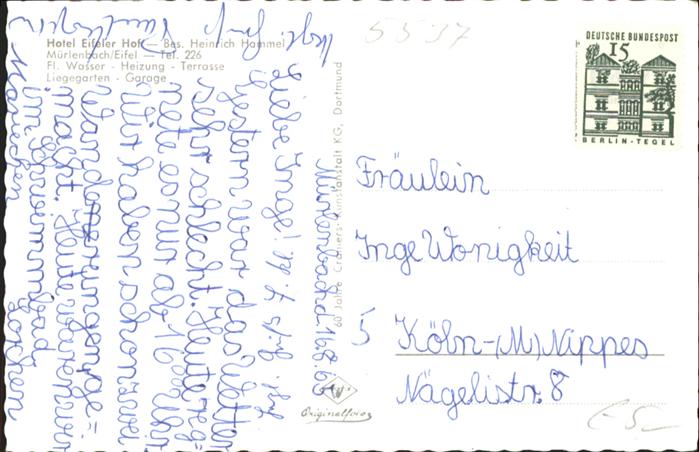 Hotel Eifeler Hof — Bes. Heinrich Hammel
Mürlenbach/Eifel — Tel. 226
Fl. Wasser - Heizung - Terrasse
Liegegarten - Garage
60 Jahre Cramers Kunstanstalt KG, Dortmund
Originalfoto
DEUTSCHE BUNDESPOST
15
BERLIN-TEGEL
5537
Fräulein
Inge Wonigkeit
5 Köln-(M)Nippes
Nägelistr. 8
Mürlenbach d 16.8.65
Liebe Inge!
Gestern war das Wetter
sehr schlecht. Heute reg-
nete es nur ab 16 00 Uhr
Wir haben schon zwei
Wanderungen ge=
macht. Heute waren wir
im Schwimmbad